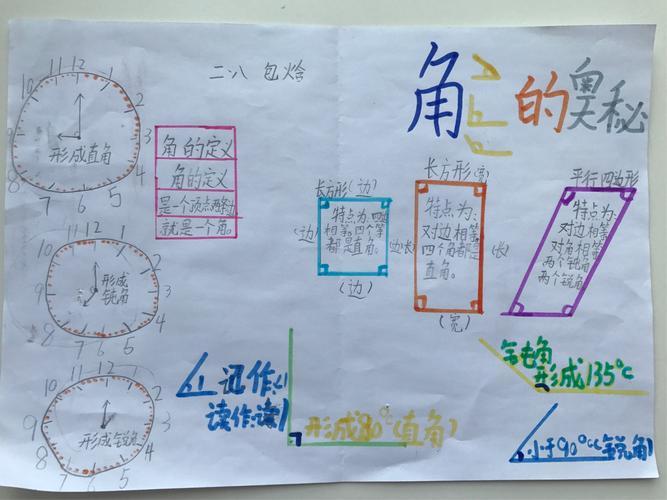 二.八 包焓
角的奥秘
12
1
2
3
4
5
6
7
8
9
10
11
形成直角
角的定义
角的定义
是一个顶点两条边
就是一个角。
长方形(边)
(边)
特点为:四边
相等。四个等
都是直角。
(边长)
(边)
长方形(宽)
特点为:
对边相等
四个角都是
直角。
(长)
(宽)
平行四边形
特点为:
对边相等
对角相等
两个锐角
两个锐角
12
1
2
3
4
5
6
7
8
9
10
11
形成
锐角
12
1
2
3
4
5
6
7
8
9
10
11
形成锐角
1
迅作:∠1
读作:读1
形成80°(直角)
形成135°C
小于90°C(锐角)